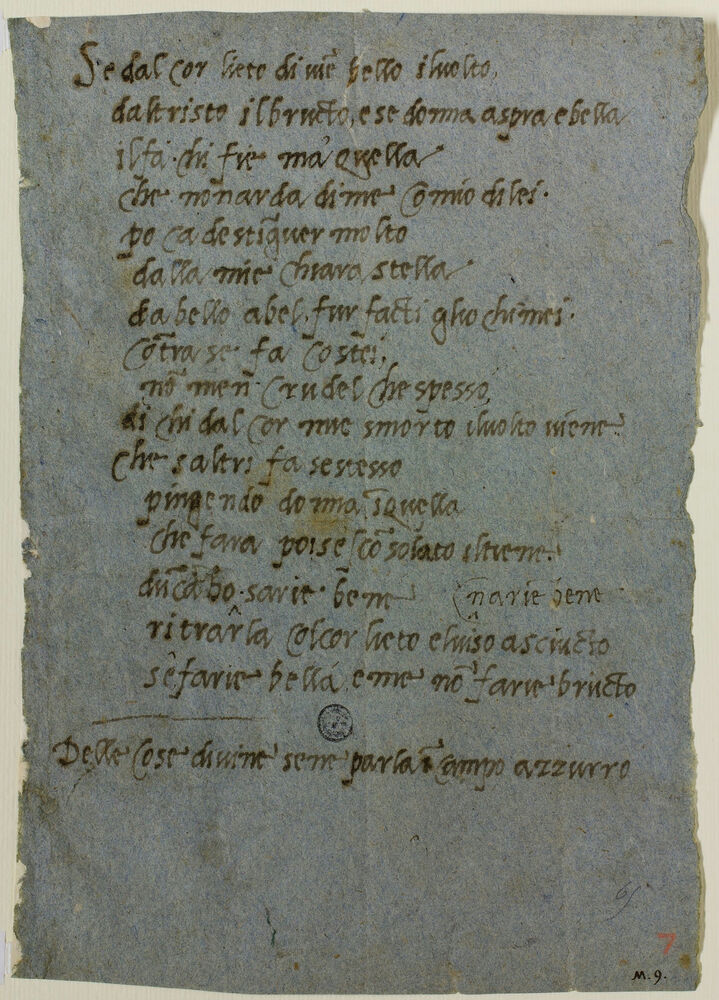 Se dal cor lieto diviē bello iluolto,
daltristo ilbructo, e se donna aspra e bella
ilfa· chi fie ma' quella
che nonarda dime com'io dilei·
po ca destīguer molto
dalla mie chiara stella
da bello abel, fur facti gliochimei·
cōtra se fa costei,
nō men crudel che spesso,
di chi dal cor mie smorto iluolto viene
che saltri fa sestesso
pingendo donna īquella
che fara poi se scōsolato iltiene.
dūcabo·sarie bene narie bene
ritrarla colcor lieto eluiso asciucto
se farie bella e me nō farie bructo
Delle cose divine sene parla ī campo azzurro
69
7
M. 9.